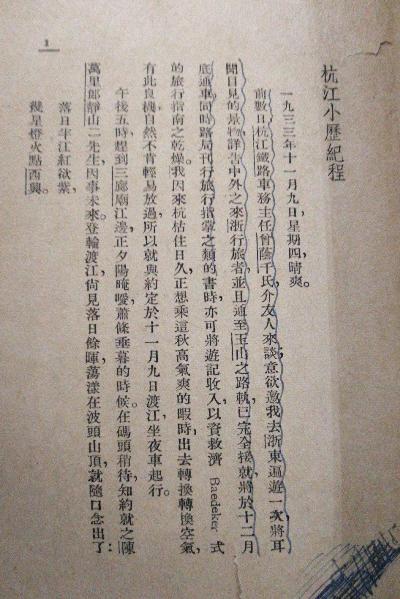 杭江小歷紀程
一九三三年十一月九日,星期四,晴爽。
前數日杭江鐵路車務主任曾蔭千氏介友人來談,意欲邀我去浙東遍遊一次,將耳
聞目見的景物,詳告中外之來浙行旅者,並且通至玉山之路軌,已完全接就,將於十二月
底通車,同時路局刊行旅行指掌之類的書時,亦可將遊記收入,以資救濟 Baedeker 式
的旅行指南之乾燥。我因來杭枯住日久,正想乘這秋高氣爽的暇時,出去轉換轉換空氣,
有此良機,自然不肯輕易放過,所以就與約定於十一月九日渡江,坐夜車起行。
午後五時,趕到三廊廟江邊,正夕陽晻曖,蕭條垂暮的時候。在碼頭稍待,知約就之陳
萬里郎靜山二先生,因事未來。登輪渡江,尚見落日餘暉,蕩漾在波頭山頂,就隨口念出了:
落日半江紅欲紫,
幾星燈火點西興。
1